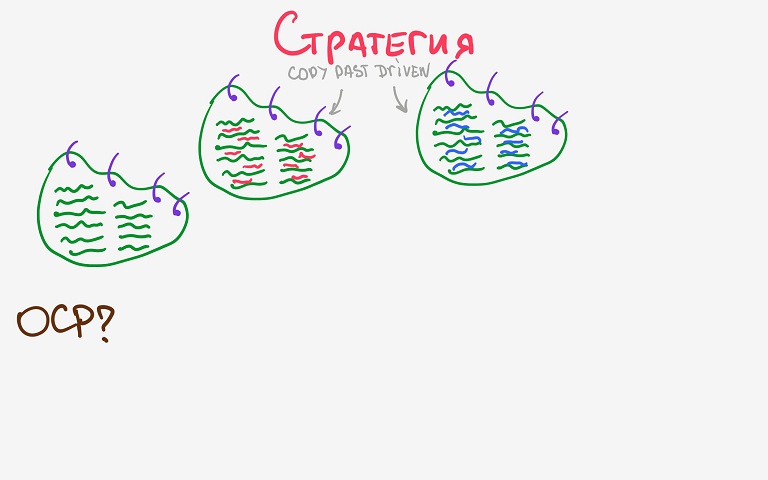 Стратегия
COPY PAST DRIVEN
OCP?